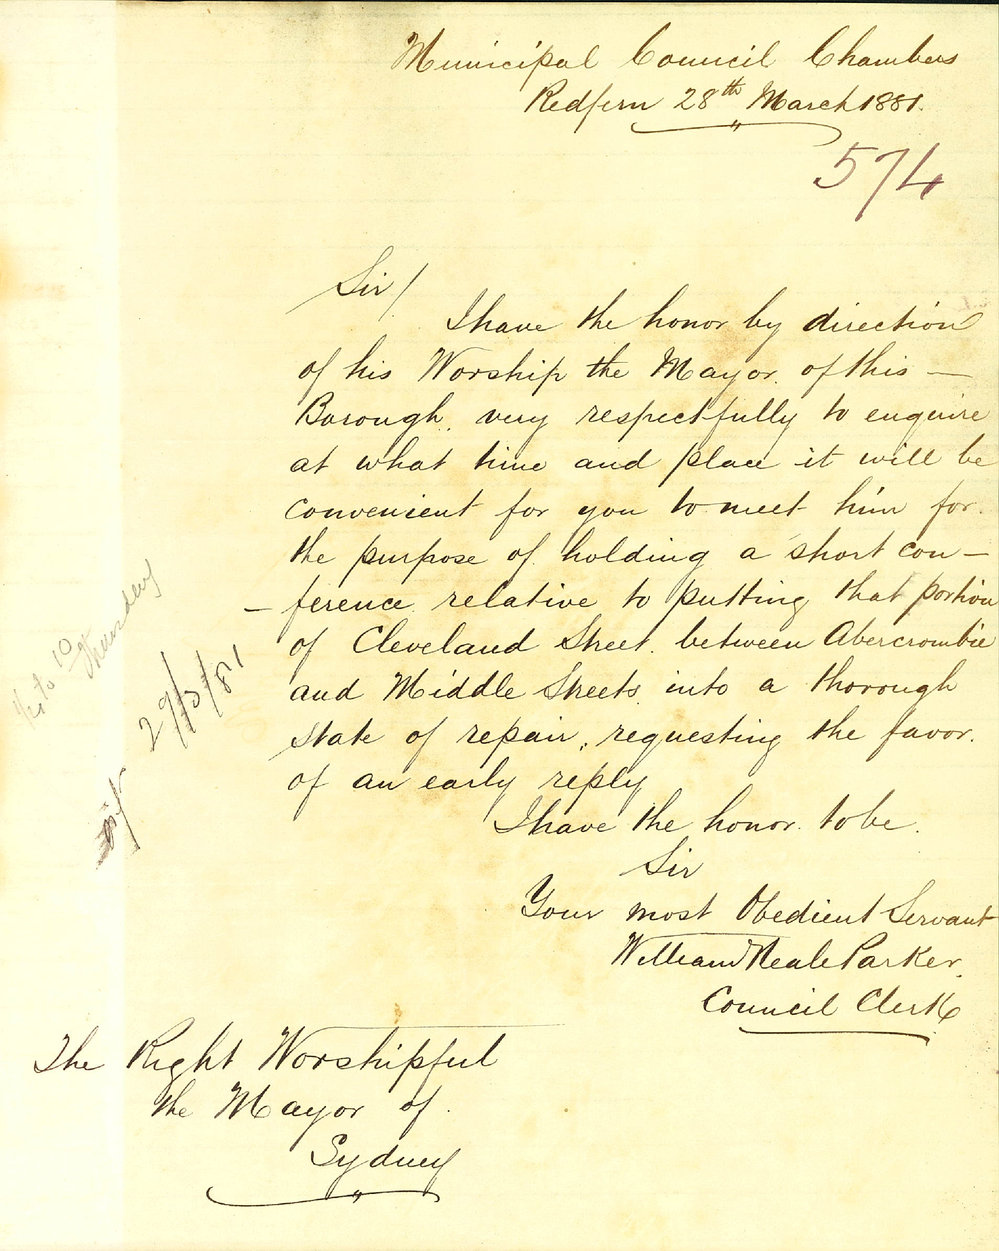 Municipal Council Chambers
Redfern 28th March 1881.
574
Sir/
I have the honor by direction
of his Worship the Mayor of this —
Borough, very respectfully to enquire
at what time and place it will be
convenient for you to meet him for
the purpose of holding a short con —
— ference relative to putting that portion
of Cleveland Street, between Abercrombie
and Middle Streets, into a thorough
state of repair, requesting the favor
of an early reply
I have the honor to be
Sir
Your most Obedient Servant
William Neale Parker
Council Clerk
The Right Worshipful
the Mayor of
Sydney
10
Thursday
29/3/81